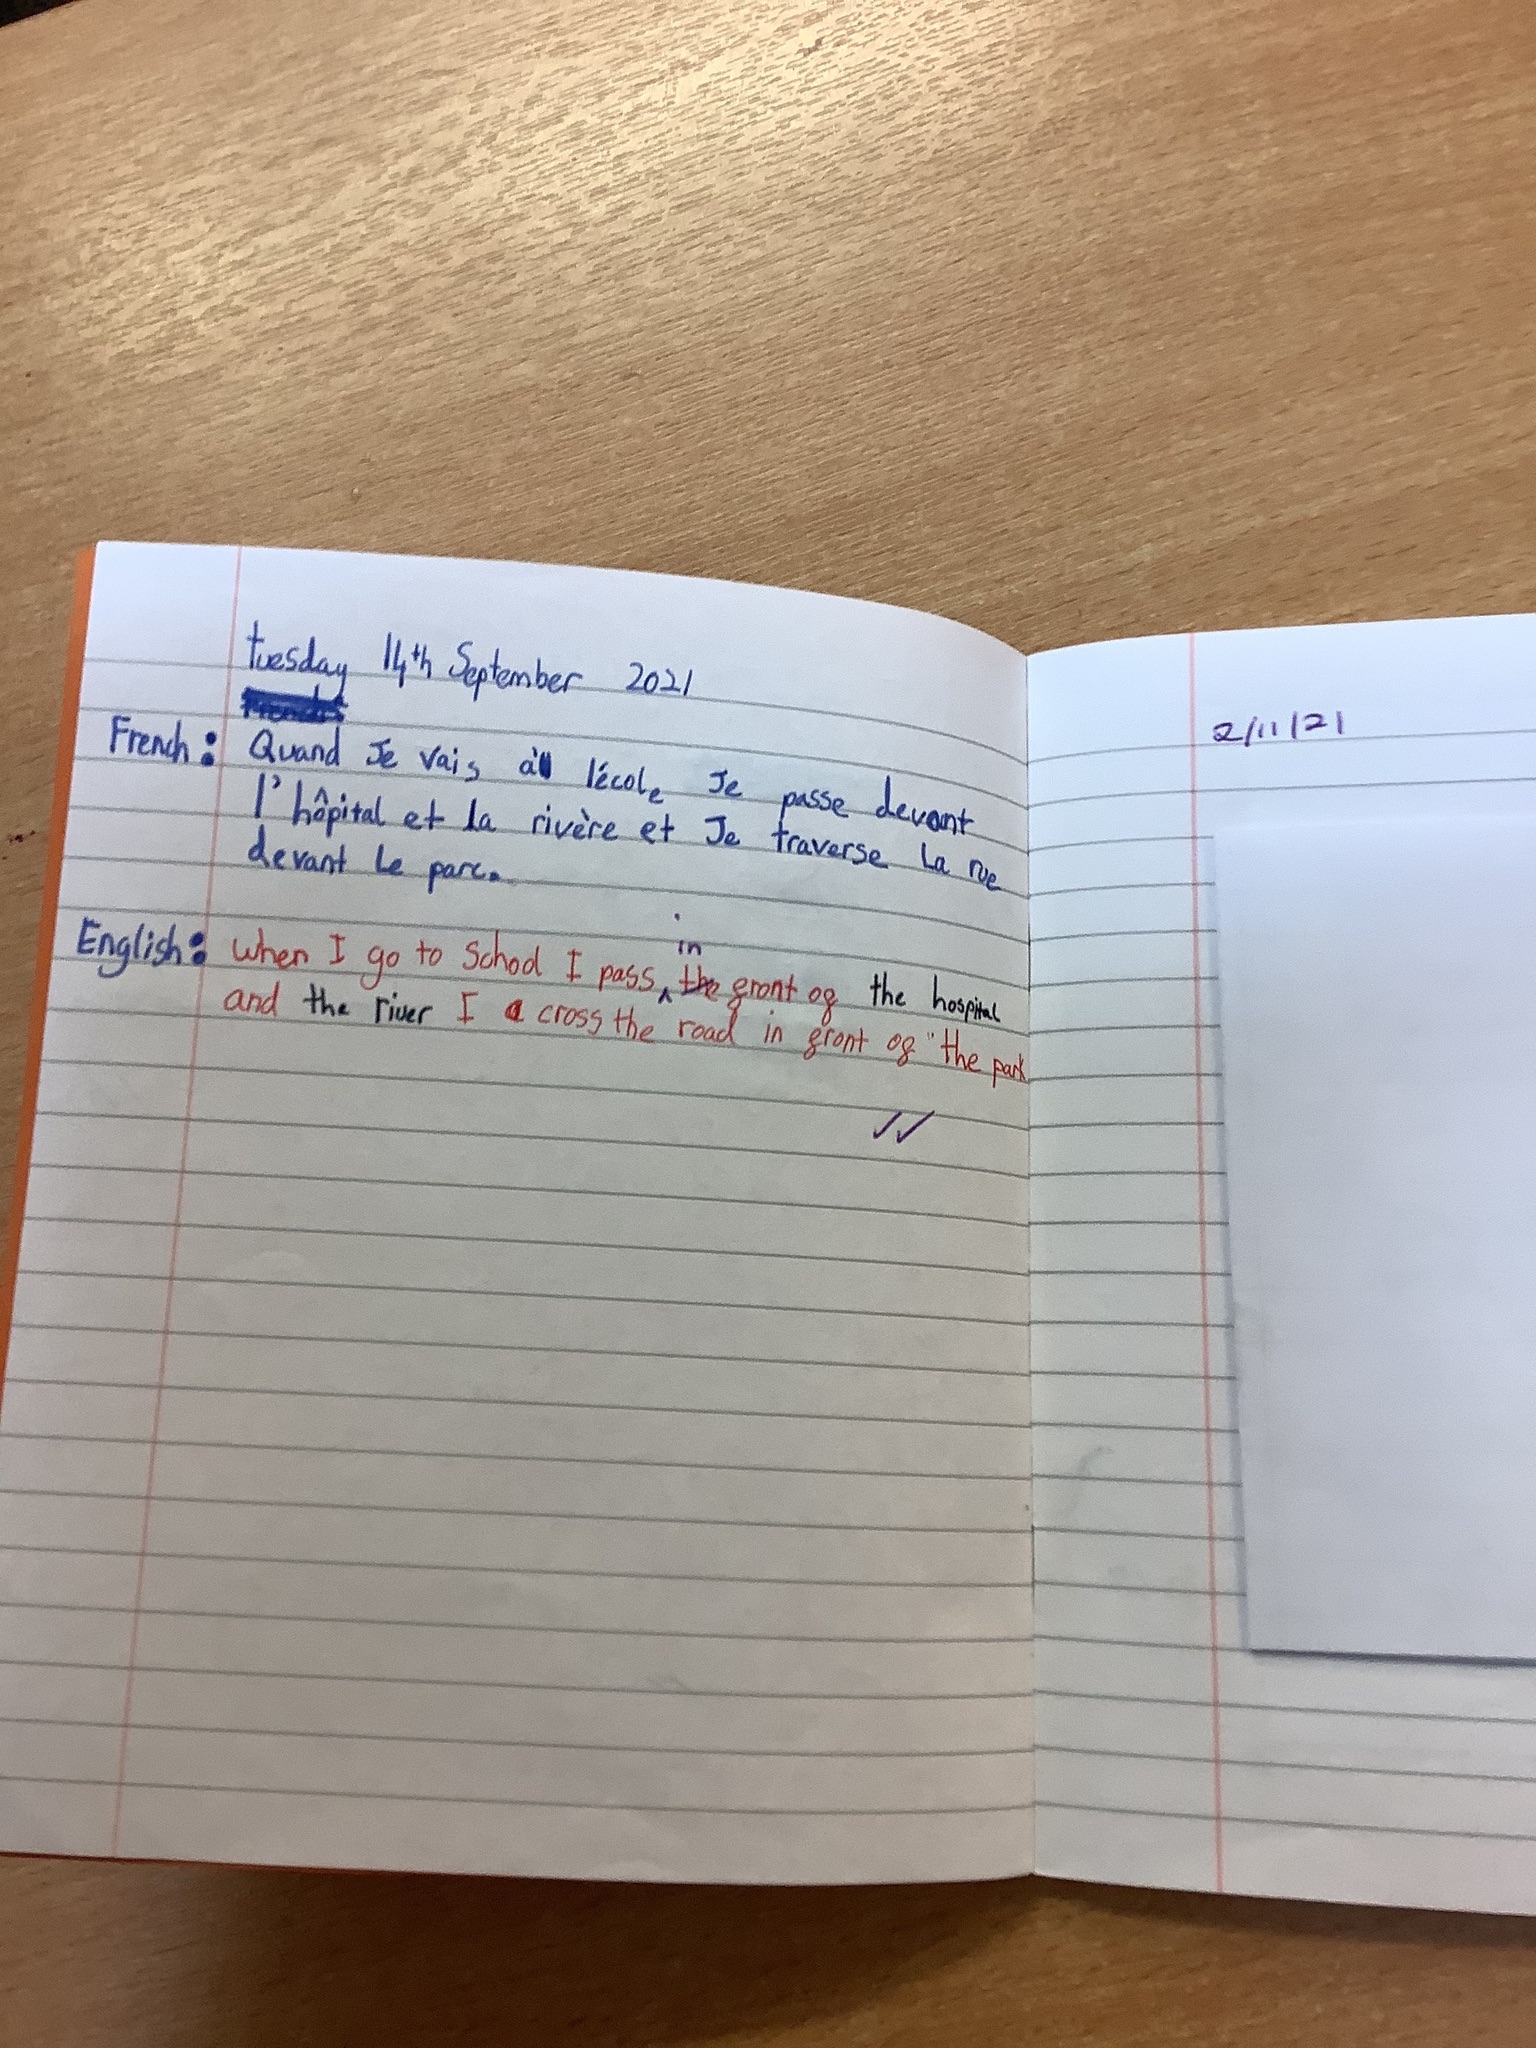 tuesday 14th September 2021
French: Quand Je vais à l'école Je passe devant
l'hôpital et la rivère et Je traverse la rue
devant le parc.
in
English: when I go to School I pass ^ the front of the hospital
and the river I cross the road in front of "the park
2/11/21